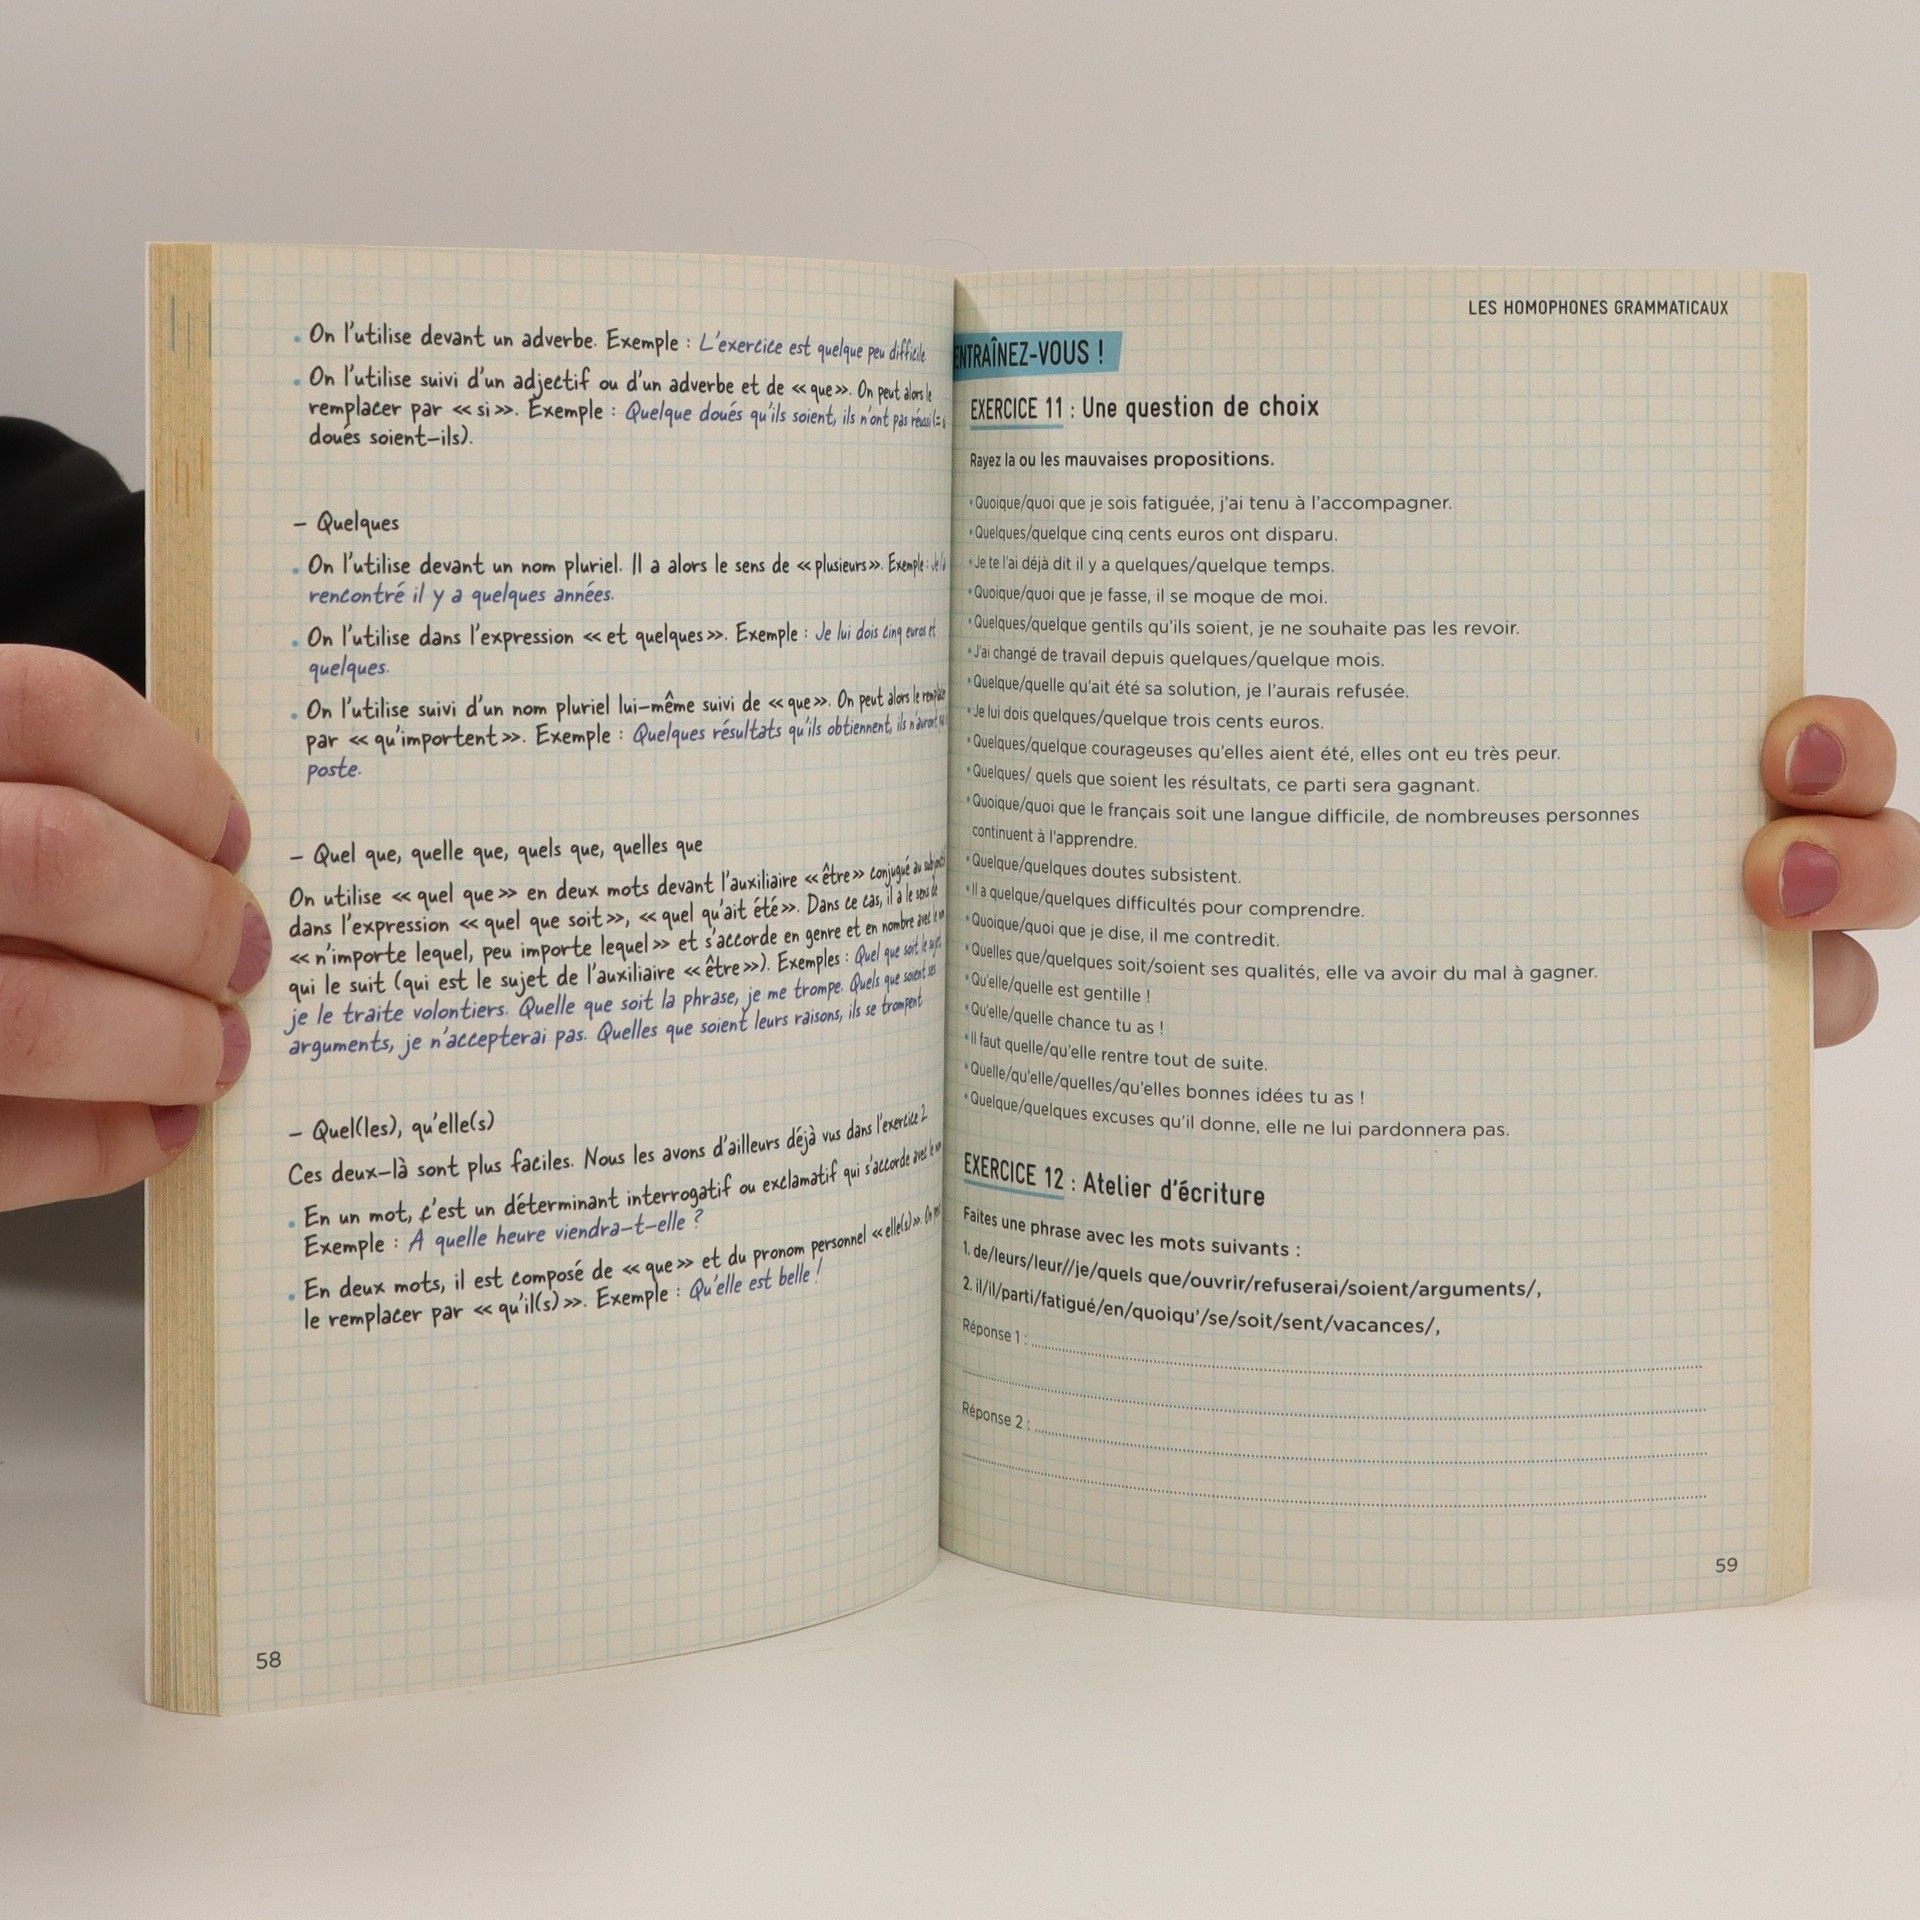 On l'utilise devant un adverbe. Exemple : L'exercice est quelque peu difficile
On l'utilise suivi d'un adjectif ou d'un adverbe et de « que ». On peut alors le
remplacer par « si ». Exemple : Quelque doués qu'ils soient, ils n'ont pas réussi (=
doués soient-ils).
– Quelques
On l'utilise devant un nom pluriel. Il a alors le sens de « plusieurs ». Exemple :
rencontré il y a quelques années.
On l'utilise dans l'expression « et quelques ». Exemple : Je lui dois cinq euros et
quelques.
On l'utilise suivi d'un nom pluriel lui-même suivi de « que ». On peut alors le
par « qu'importent ». Exemple : Quelques résultats qu'ils obtiennent, ils n'auront
poste.
– Quel que, quelle que, quels que, quelles que
On utilise « quel que » en deux mots devant l'auxiliaire « être » conjugué au
dans l'expression « quel que soit », « quel qu'ait été ». Dans ce cas, il a le sens de
« n'importe lequel, peu importe lequel » et s'accorde en genre et en nombre avec le
qui le suit (qui est le sujet de l'auxiliaire « être »). Exemples : Quel que soit le sujet
je le traite volontiers. Quelle que soit la phrase, je me trompe. Quels que soient ses
arguments, je n'accepterai pas. Quelles que soient leurs raisons, ils se trompent
– Quel(les), qu'elle(s)
Ces deux-là sont plus faciles. Nous les avons d'ailleurs déjà vus dans l'exercice 2
En un mot, c'est un déterminant interrogatif ou exclamatif qui s'accorde avec le
Exemple : A quelle heure viendra-t-elle ?
En deux mots, il est composé de « que » et du pronom personnel « elle(s) ».
le remplacer par « qu'il(s) ». Exemple : Qu'elle est belle !
58
LES HOMOPHONES GRAMMATICAUX
ENTRAÎNEZ-VOUS !
EXERCICE 11 : Une question de choix
Rayez la ou les mauvaises propositions.
• Quoique/quoi que je sois fatiguée, j'ai tenu à l'accompagner.
• Quelques/quelque cinq cents euros ont disparu.
• Je te l'ai déjà dit il y a quelques/quelque temps.
• Quoique/quoi que je fasse, il se moque de moi.
• Quelques/quelque gentils qu'ils soient, je ne souhaite pas les revoir.
• J'ai changé de travail depuis quelques/quelque mois.
• Quelque/quelle qu'ait été sa solution, je l'aurais refusée.
• Je lui dois quelques/quelque trois cents euros.
• Quelques/quelque courageuses qu'elles aient été, elles ont eu très peur.
• Quelques/ quels que soient les résultats, ce parti sera gagnant.
• Quoique/quoi que le français soit une langue difficile, de nombreuses personnes
continuent à l'apprendre.
• Quelque/quelques doutes subsistent.
• Il a quelque/quelques difficultés pour comprendre.
• Quoique/quoi que je dise, il me contredit.
• Quelles que/quelques soit/soient ses qualités, elle va avoir du mal à gagner.
• Qu'elle/quelle est gentille !
• Qu'elle/quelle chance tu as !
• Il faut quelle/qu'elle rentre tout de suite.
• Quelle/qu'elle/quelles/qu'elles bonnes idées tu as !
• Quelque/quelques excuses qu'il donne, elle ne lui pardonnera pas.
EXERCICE 12 : Atelier d'écriture
Faites une phrase avec les mots suivants :
1. de/leurs/leur//je/quels que/ouvrir/refuserai/soient/arguments/,
2. il/il/parti/fatigué/en/quoiqu'/se/soit/sent/vacances/,
Réponse 1 :
Réponse 2 :
59